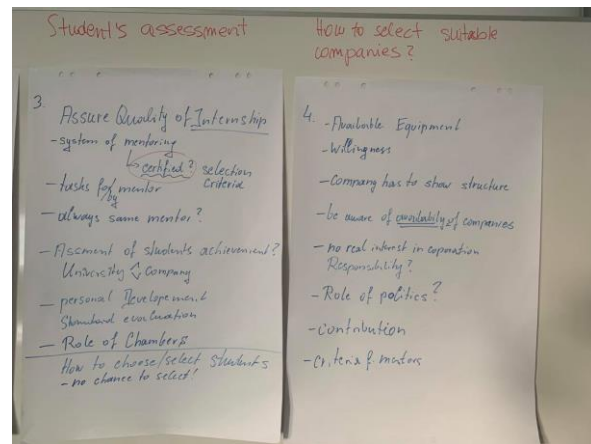 Student's assessment
3.
Assure Quality of Internship
- system of mentoring
↳ certified? selection criteria
- tasks for/by mentor
- always same mentor?
- Assment of students achievement?
University ↔ Company
- personal Developement
Standard evaluation
- Role of Chambers
How to choose/select students
- no chance to select!
How to select suitable
companies?
4. - Available Equipment
- Willingness
- Company has to show structure
- be aware of availability of companies
- no real interest in coporation
Responsibility?
- Role of politics?
- contribution
- Criteria f. mentors